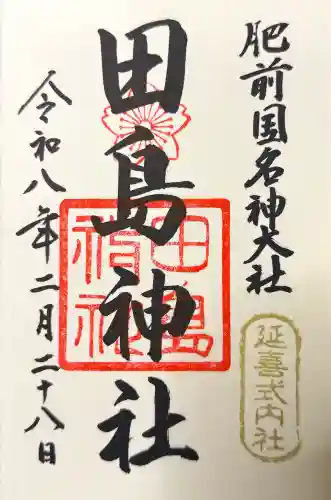 肥前国名神大社
延喜式内社
田島神社
田島
神社
令和八年二月二十八日